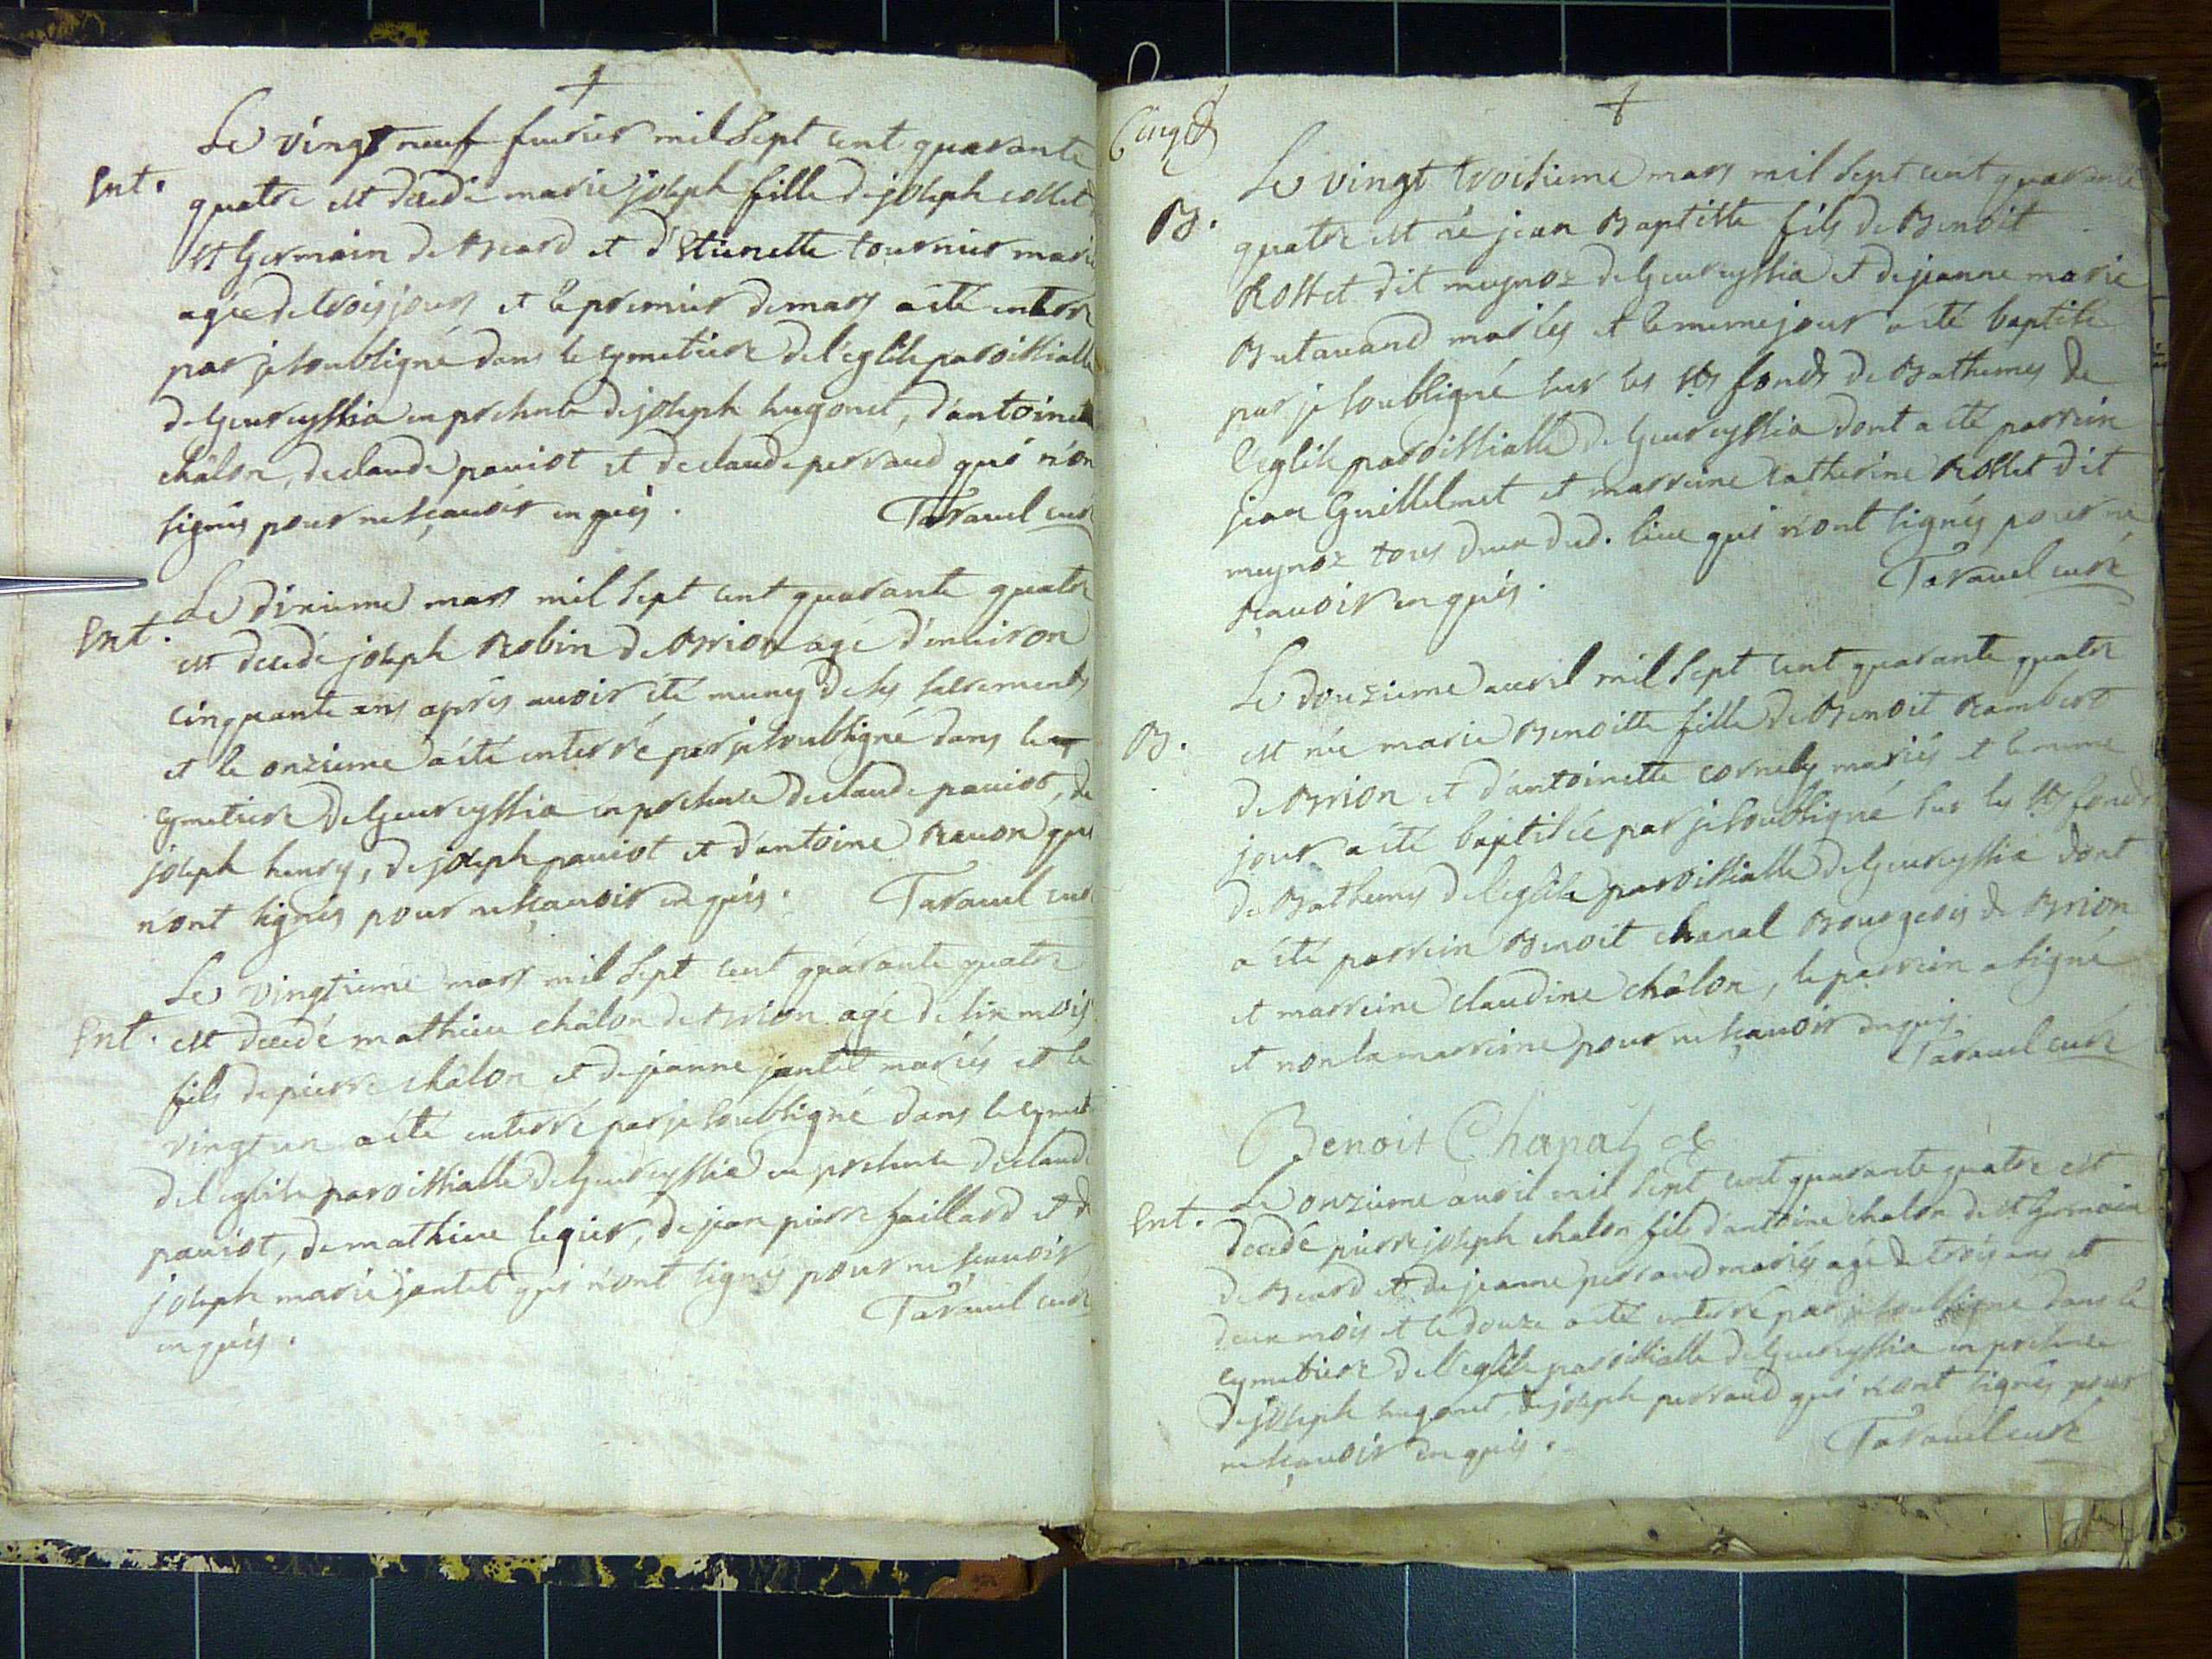 Le vingt neuf fevrier mil sept cent quarante
Ent. quatre est decedé marie joseph fille de joseph collet d
st Germain de Beard et d'Etienette tournier marié
agée de trois jours et le premier de mars a été enterré
par je soussigné dans le cymetiere de l'eglise paroissialle
de Geureyssia en presence de joseph hugonet, d'antoine
châlon, de claude paviot et de claude perraud qui n'on
signés pour ne sçavoir enquis. Taravel curé
Ent. Le dixieme mars mil sept cent quarante quatre
est decedé joseph Robin de Brion agé d'environ
cinquante ans apres avoir été muny de ses sacrements
et le onzieme a été enterré par je soussigné dans le
cymetiere de Geureyssia en presence de claude paviot, de
joseph henry, de joseph paviot et d'antoine Ravon qui
n'ont signés pour ne sçavoir enquis. Taravel curé
Le vingtieme mars mil sept cent quarante quatre
Ent. est decedé mathieu châlon de Brion agé de six mois
fils de pierre châlon et de jeanne jantet mariés et le
vingt un a été enterré par je soussigné dans le cymet
de l'eglise paroissialle de Geureyssia en presence de claude
paviot, de mathieu legier, de jean pierre gaillard et d
joseph marie jantet qui n'ont signés pour ne sçavoir
enquis. Taravel curé
Cinq
Le vingt troisieme mars mil sept cent quarante
B. quatre est né jean Baptiste fils de Benoit
Rosset dit meynoz de Geureyssia et de jeanne marie
Butavand mariés et le meme jour a été baptisé
par je soussigné sur les sts fonds de Bathemes de
l'eglise paroissialle de Geureyssia dont a été parrein
jean Guillelmet et marreine catherine Rosset dit
meynoz tous deux dud. lieu qui n'ont signés pour ne
sçavoir enquis. Taravel curé
Le douzieme avril mil sept cent quarante quatre
B. est née marie Benoitte fille de Benoit Rambert
de Brion et d'antoinette cornely mariés et le meme
jour a été baptisée par je soussigné sur les sts fonds
de Bathemes de l'eglise paroissialle de Geureyssia dont
a été parrein Benoit chanal Bourgeois de Brion
et marreine claudine châlon, le parrein a signé
et non la marreine pour ne sçavoir enquis.
Taravel curé
Benoit Chanal
Le onzieme avril mil sept cent quarante quatre est
Ent. decedé pierre joseph chalon fils d'antoine chalon de st Germain
de Beard et de jeanne perraud mariés agé de trois ans et
deux mois et le douze a été enterré par je soussigné dans le
cymetiere de l'eglise paroissialle de Geureyssia en presence
de joseph hugonet, de joseph perraud qui n'ont signés pour
ne sçavoir enquis. Taravel curé